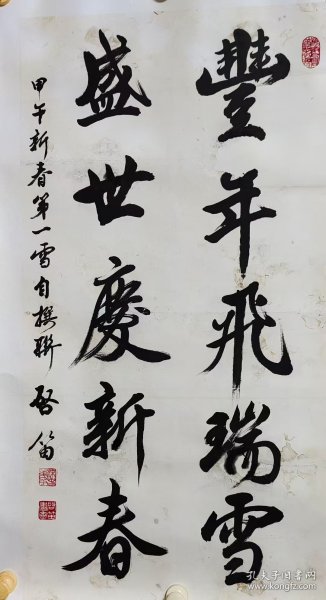 豐年飛瑞雪
盛世慶新春
甲午新春第一雪自撰聯 啓笛
孔夫子旧书网